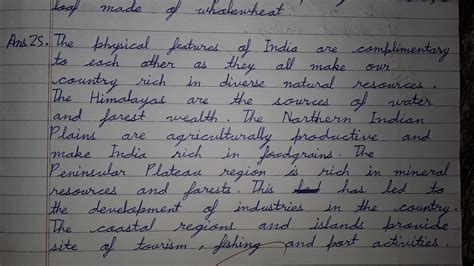 loaf made of wholewheat.
Ans 25. The physical features of India are complimentary
to each other as they all make our
country rich in diverse natural resources.
The Himalayas are the sources of water
and forest wealth. The Northern Indian
Plains are agriculturally productive and
make India rich in foodgrains. The
Peninsular Plateau region is rich in mineral
resources and forests. This has led to
the development of industries in the country.
The coastal regions and islands provide
site of tourism, fishing and port activities.